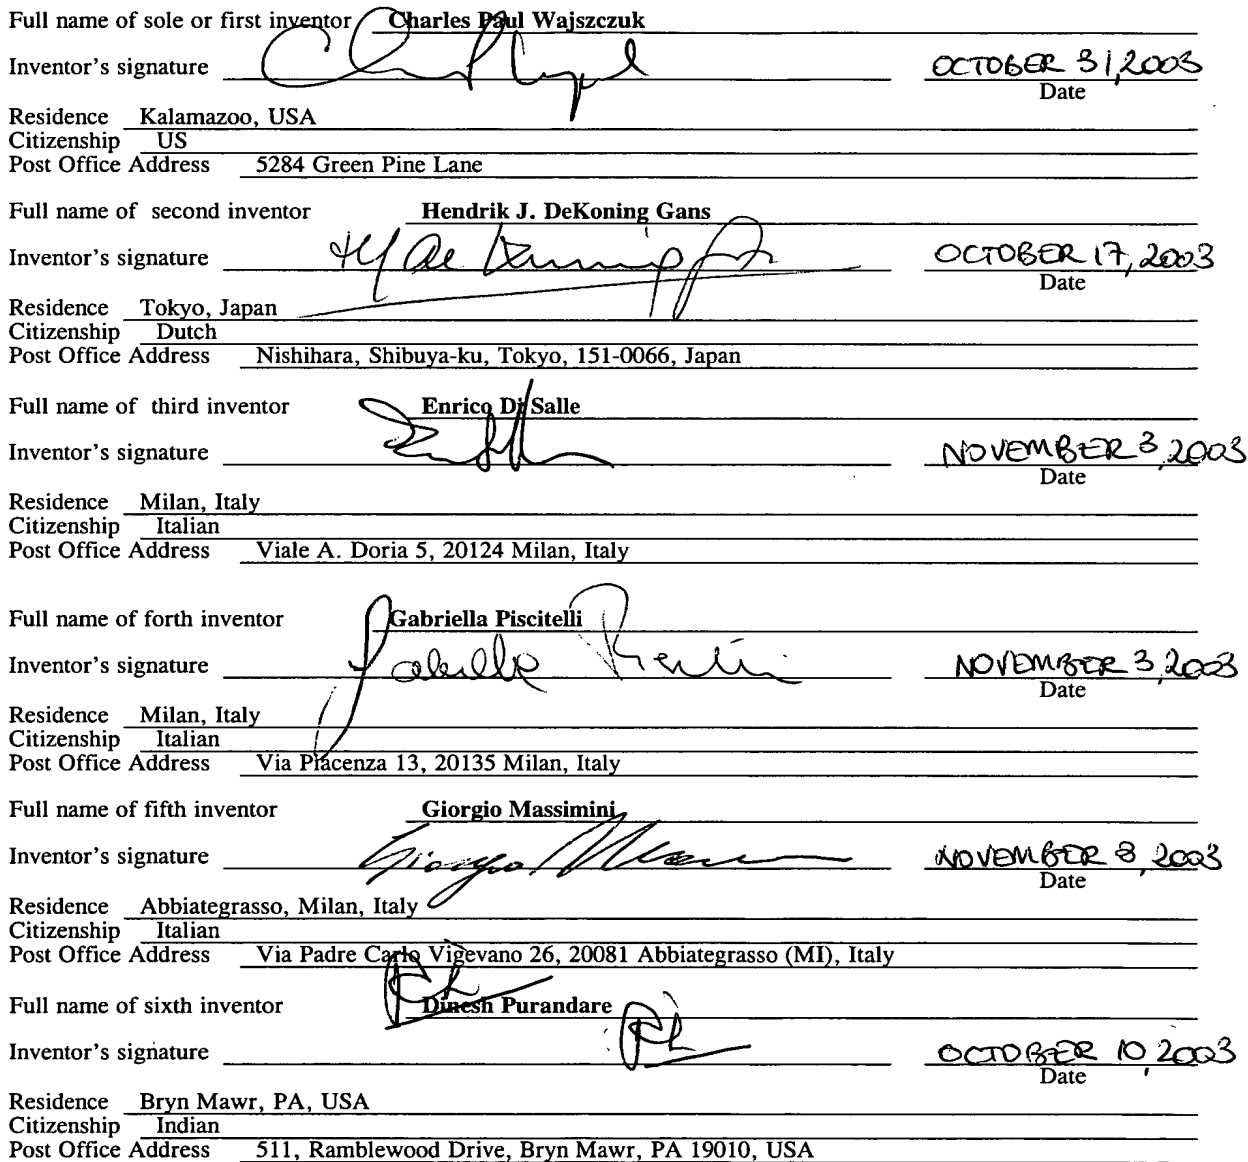 Full name of sole or first inventor Charles Paul Wajszczuk
Inventor's signature OCTOBER 31, 2003
Date
Residence Kalamazoo, USA
Citizenship US
Post Office Address 5284 Green Pine Lane
Full name of second inventor Hendrik J. DeKoning Gans
Inventor's signature OCTOBER 17, 2003
Date
Residence Tokyo, Japan
Citizenship Dutch
Post Office Address Nishihara, Shibuya-ku, Tokyo, 151-0066, Japan
Full name of third inventor Enrico Di Salle
Inventor's signature NOVEMBER 3, 2003
Date
Residence Milan, Italy
Citizenship Italian
Post Office Address Viale A. Doria 5, 20124 Milan, Italy
Full name of forth inventor Gabriella Piscitelli
Inventor's signature NOVEMBER 3, 2003
Date
Residence Milan, Italy
Citizenship Italian
Post Office Address Via Piacenza 13, 20135 Milan, Italy
Full name of fifth inventor Giorgio Massimini
Inventor's signature Giorgio NOVEMBER 2003
Date
Residence Abbiategrasso, Milan, Italy
Citizenship Italian
Post Office Address Via Padre Carlo Vigevano 26, 20081 Abbiategrasso (MI), Italy
Full name of sixth inventor Dinesh Purandare
Inventor's signature OCTOBER 10, 2003
Date
Residence Bryn Mawr, PA, USA
Citizenship Indian
Post Office Address 511, Ramblewood Drive, Bryn Mawr, PA 19010, USA